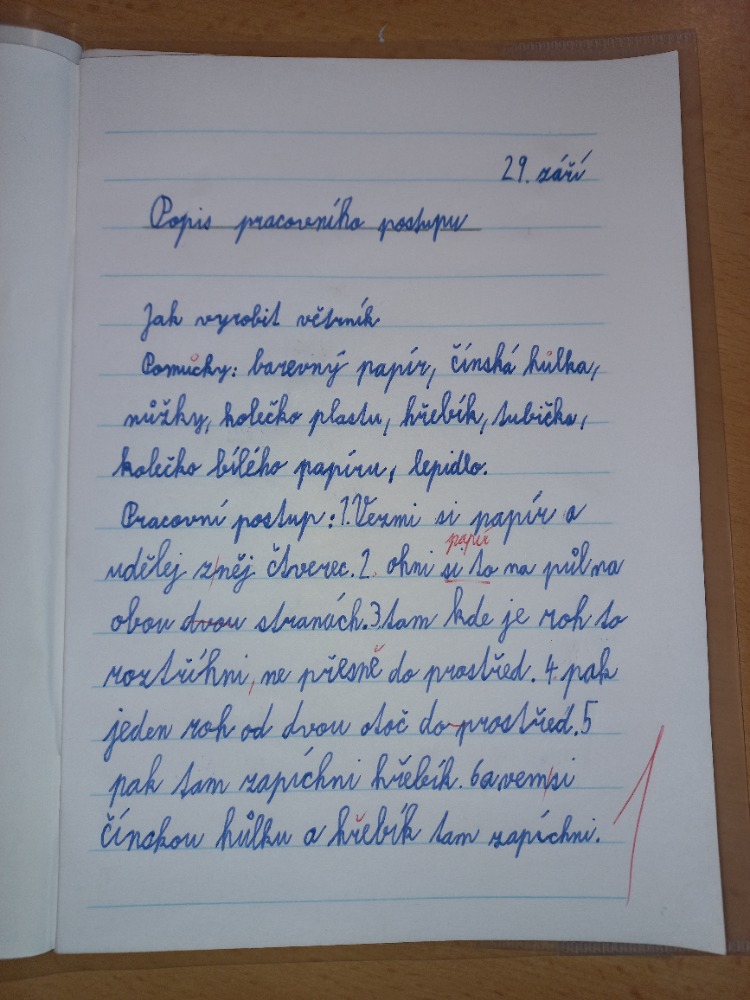 29. září
Popis pracovního postupu
Jak vyrobit větrník
Pomůcky: barevný papír, čínská hůlka,
nůžky, kolečko plastu, hřebík, tubička,
kolečko bílého papíru, lepidlo.
Pracovní postup: 1. Vezmi si papír a
papír
udělej z něj čtverec. 2. ohni si to na půl na
obou dvou stranách. 3. tam kde je roh to
roztříhni, ne přesně do prostřed. 4. pak
jeden roh od dvou otoč do prostřed. 5
pak tam zapíchni hřebík. 6 a vem si
čínskou hůlku a hřebík tam zapíchni.
1